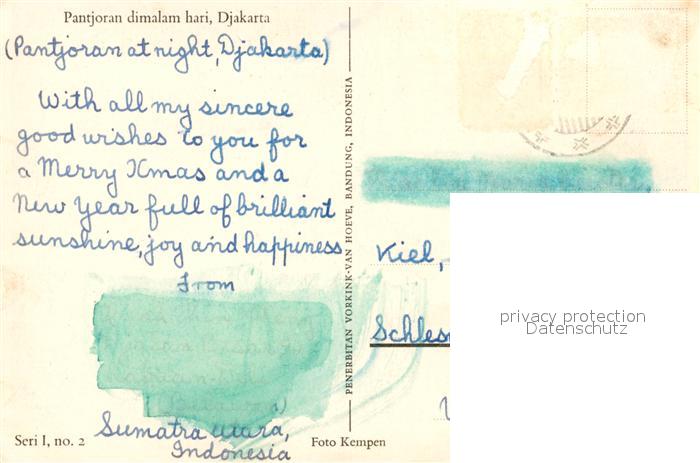 Pantjoran dimalam hari, Djakarta
(Pantjoran at night, Djakarta)
With all my sincere
good wishes to you for
a Merry Xmas and a
New Year full of brilliant
sunshine, joy and happiness
From
Sumatra utara,
Indonesia
Seri I, no. 2
Foto Kempen
PENERBITAN VORKINK-VAN HOEVE, BANDUNG, INDONESIA
Kiel,
privacy protection
Datenschutz